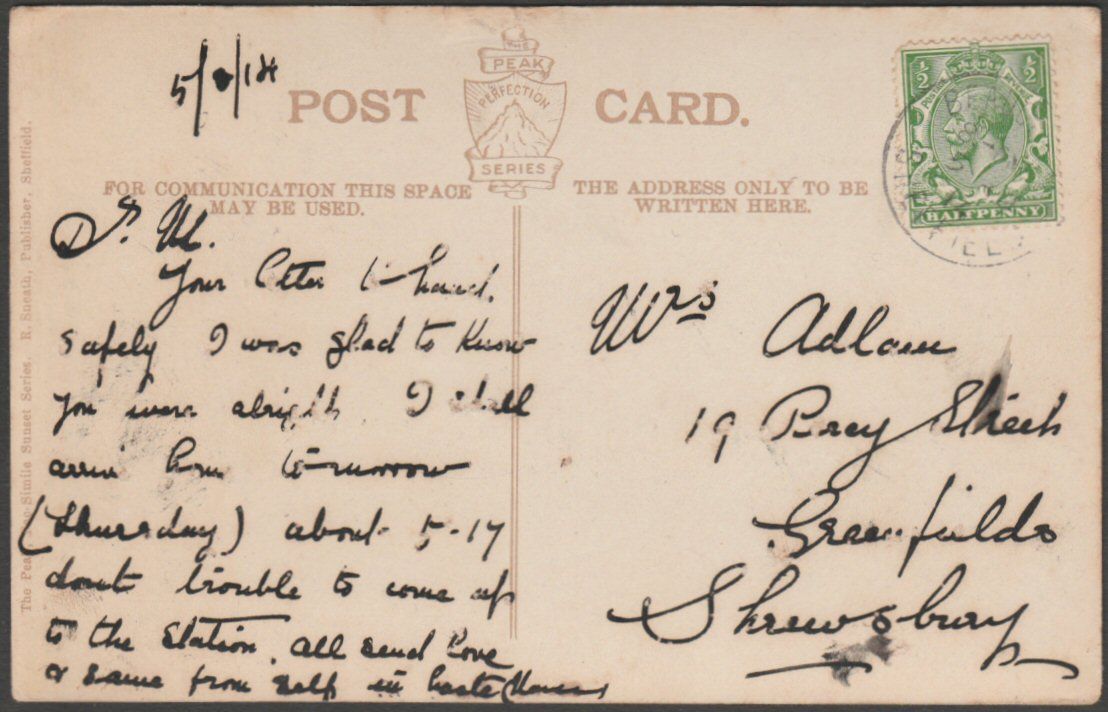 5/8/14
POST CARD.
THE
PEAK
PERFECTION
SERIES
FOR COMMUNICATION THIS SPACE
MAY BE USED.
THE ADDRESS ONLY TO BE
WRITTEN HERE.
½ ½
POSTAGE REVENUE
HALFPENNY
FIELD
The Peak Simile Sunset Series. R. Sneath, Publisher, Sheffield.
Dr. M.
Your letter to hand.
safely I was glad to know
you were alright I shall
arrive home to-morrow
(Thursday) about 5-17
dont trouble to come up
to the station. all send love
& same from self in haste
Mrs Adlam
19 Percy Street
Greenfields
Shrewsbury